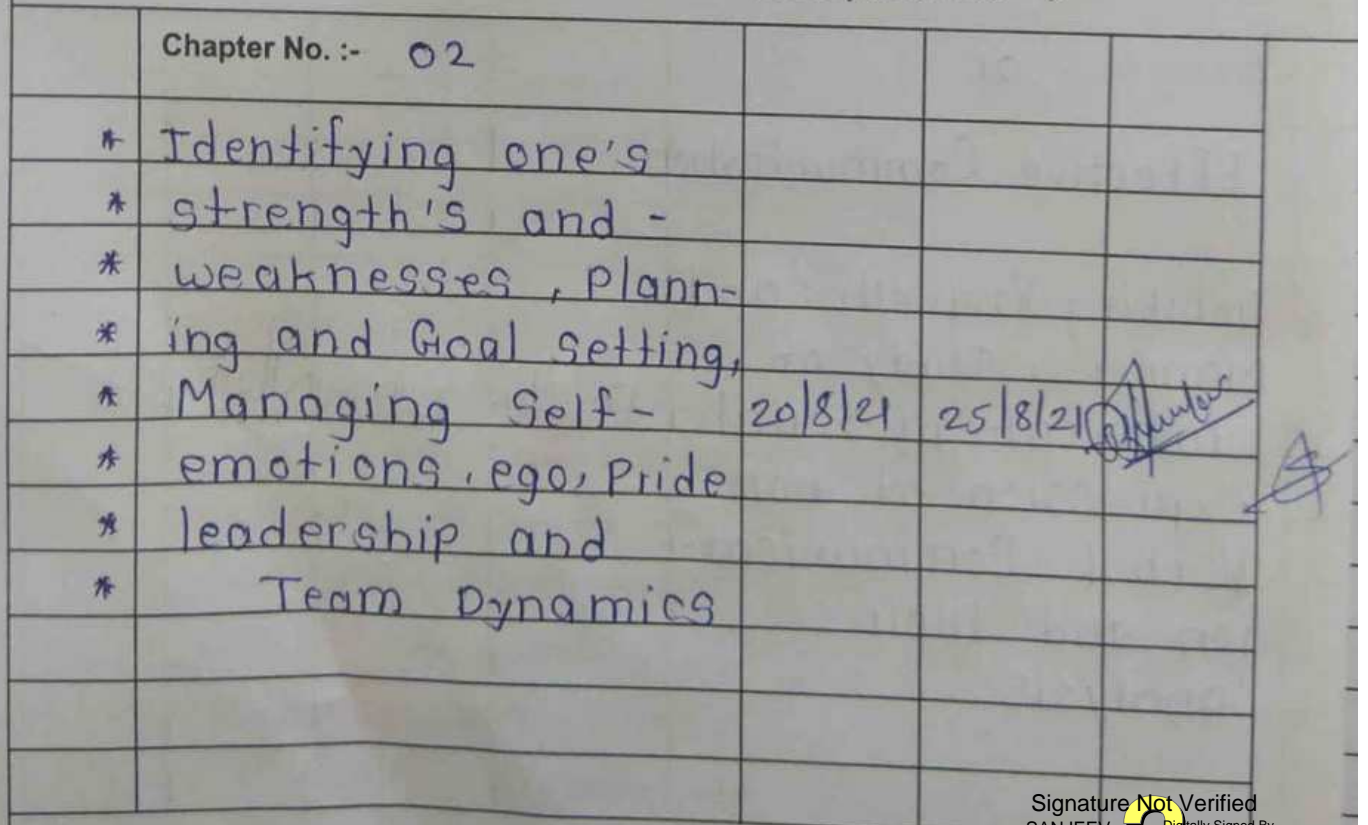 Chapter No. :- 02
* Identifying one's
* strength's and -
* weaknesses, Plann-
* ing and Goal setting,
* Managing Self- 20/8/21 25/8/21
* emotions, ego, Pride
* leadership and
* Team Dynamics
Signature Not Verified
SANJEEV Digitally Signed By